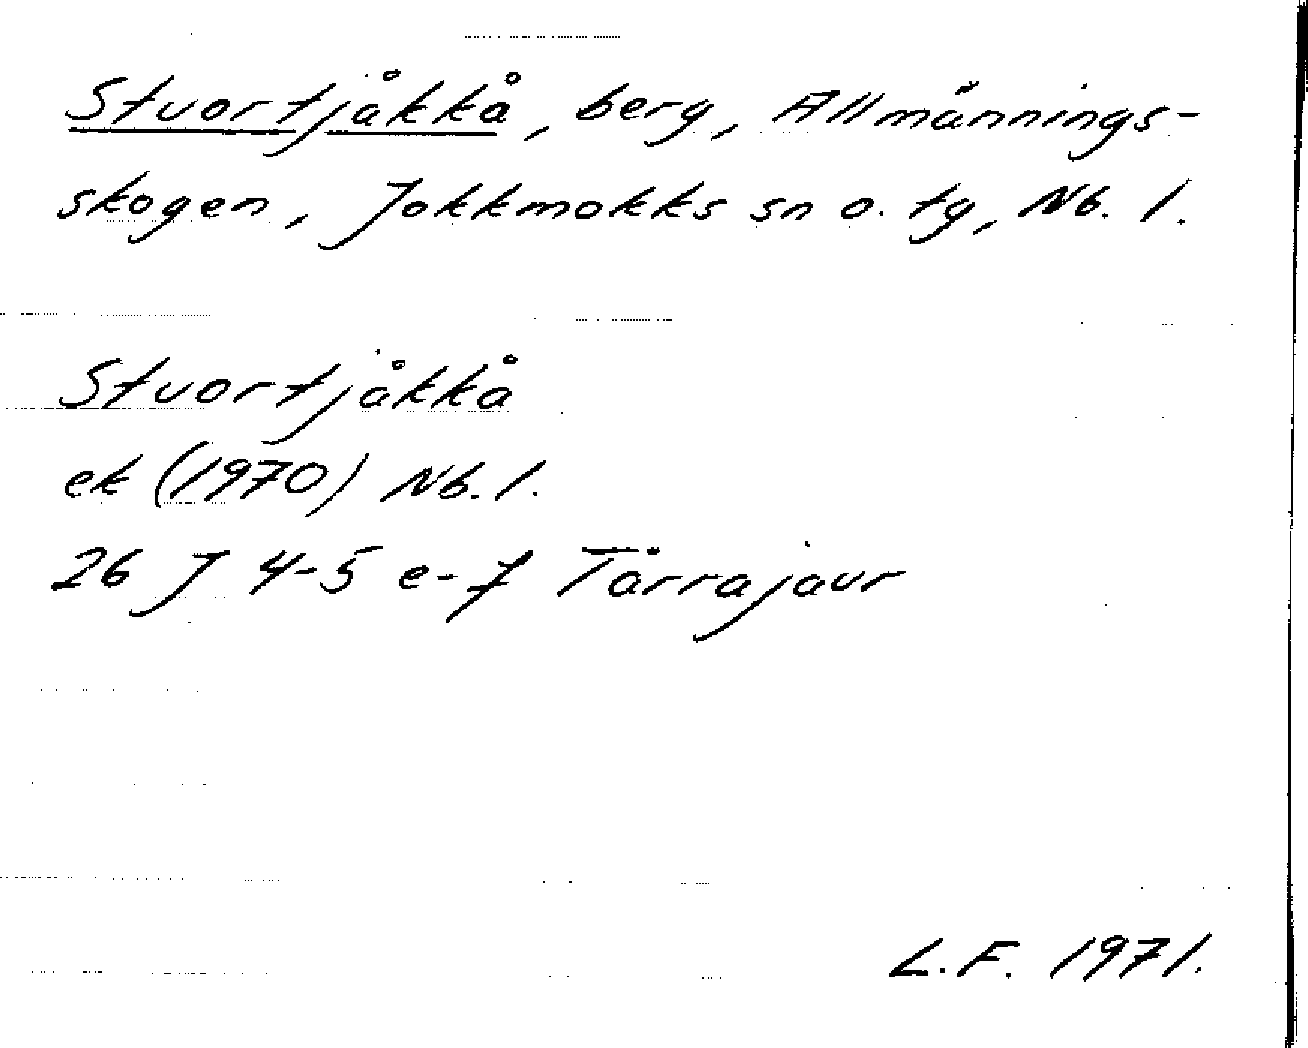 Stuortjåkkå, berg, Allmännings-
skogen, Jokkmokks sn o. tg, Nb. l.
Stuortjåkkå
ek (1970) Nb. l.
26 J 4-5 e-f Tårrajaur
L.F. 1971.